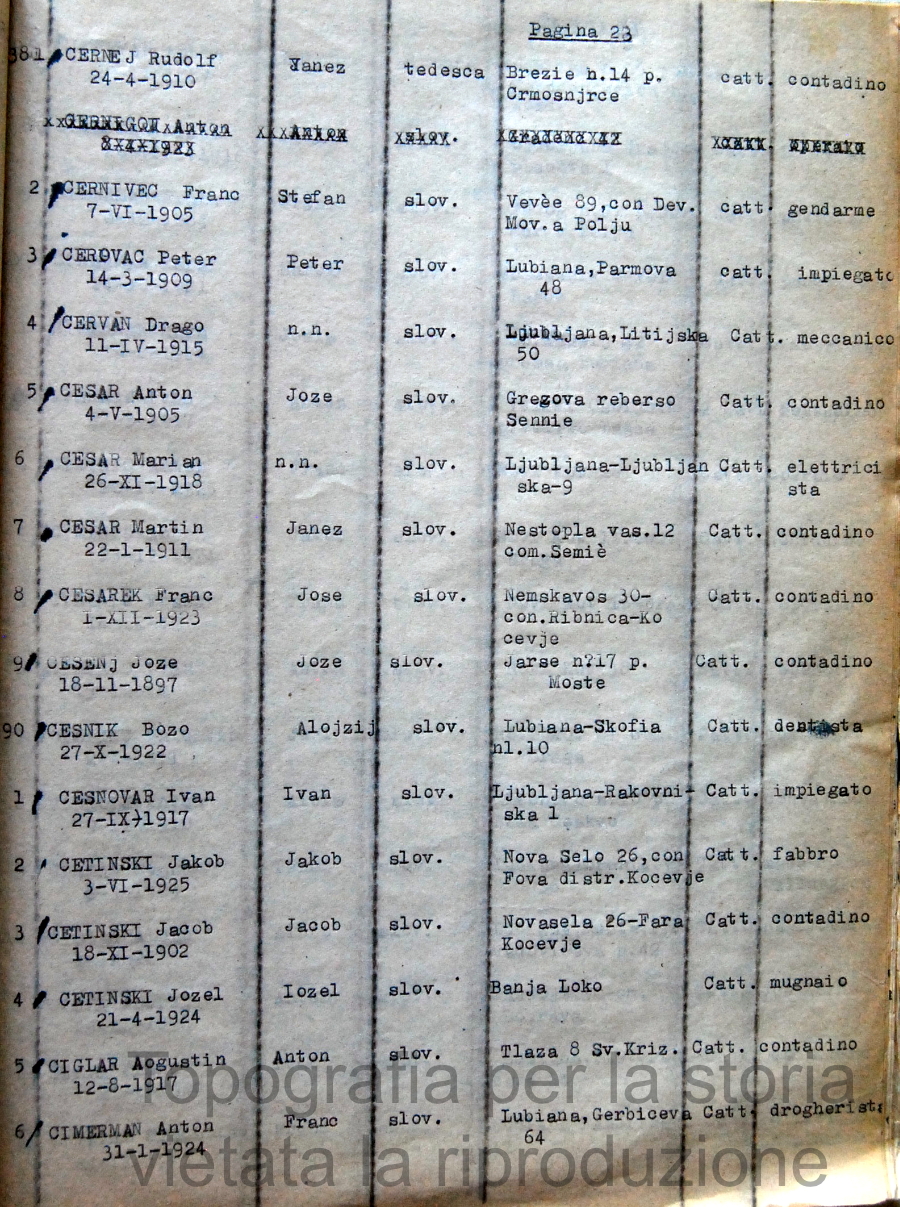 Pagina 23
381 CERNEJ Rudolf Janez tedesca Brezie h.14 p. catt. contadino
24-4-1910 Crmosnjrce
CERNIGOI Anton Anton slov. catt. operaio
8-4-1921
2 CERNIVEC Franc Stefan slov. Vevèe 89,con Dev. catt. gendarme
7-VI-1905 Mov.a Polju
3 CEROVAC Peter Peter slov. Lubiana,Parmova catt. impiegato
14-3-1909 48
4 CERVAN Drago n.n. slov. Ljubljana,Litijska Catt. meccanico
11-IV-1915 50
5 CESAR Anton Joze slov. Gregova reberso Catt. contadino
4-V-1905 Sennie
6 CESAR Marian n.n. slov. Ljubljana-Ljubljan Catt. elettrici
26-XI-1918 ska-9 sta
7 CESAR Martin Janez slov. Nestopla vas.12 Catt. contadino
22-1-1911 com.Semiè
8 CESAREK Franc Jose slov. Nemskavos 30- Catt. contadino
1-XII-1923 con.Ribnica-Ko
cevje
9 CESENj Joze Joze slov. Jarse n?17 p. Catt. contadino
18-11-1897 Moste
90 CESNIK Bozo Alojzij slov. Lubiana-Skofia Catt. dentista
27-X-1922 nl.10
1 CESNOVAR Ivan Ivan slov. Ljubljana-Rakovni- Catt. impiegato
27-IX-1917 ska 1
2 CETINSKI Jakob Jakob slov. Nova Selo 26,con Catt. fabbro
3-VI-1925 Fova distr.Kocevje
3 CETINSKI Jacob Jacob slov. Novasela 26-Fara Catt. contadino
18-XI-1902 Kocevje
4 CETINSKI Jozel Iozel slov. Banja Loko Catt. mugnaio
21-4-1924
5 CIGLAR Aogustin Anton slov. Tlaza 8 Sv.Kriz. Catt. contadino
12-8-1917
6 CIMERMAN Anton Franc slov. Lubiana,Gerbiceva Catt. drogherista
31-1-1924 64
Topografia per la storia
vietata la riproduzione